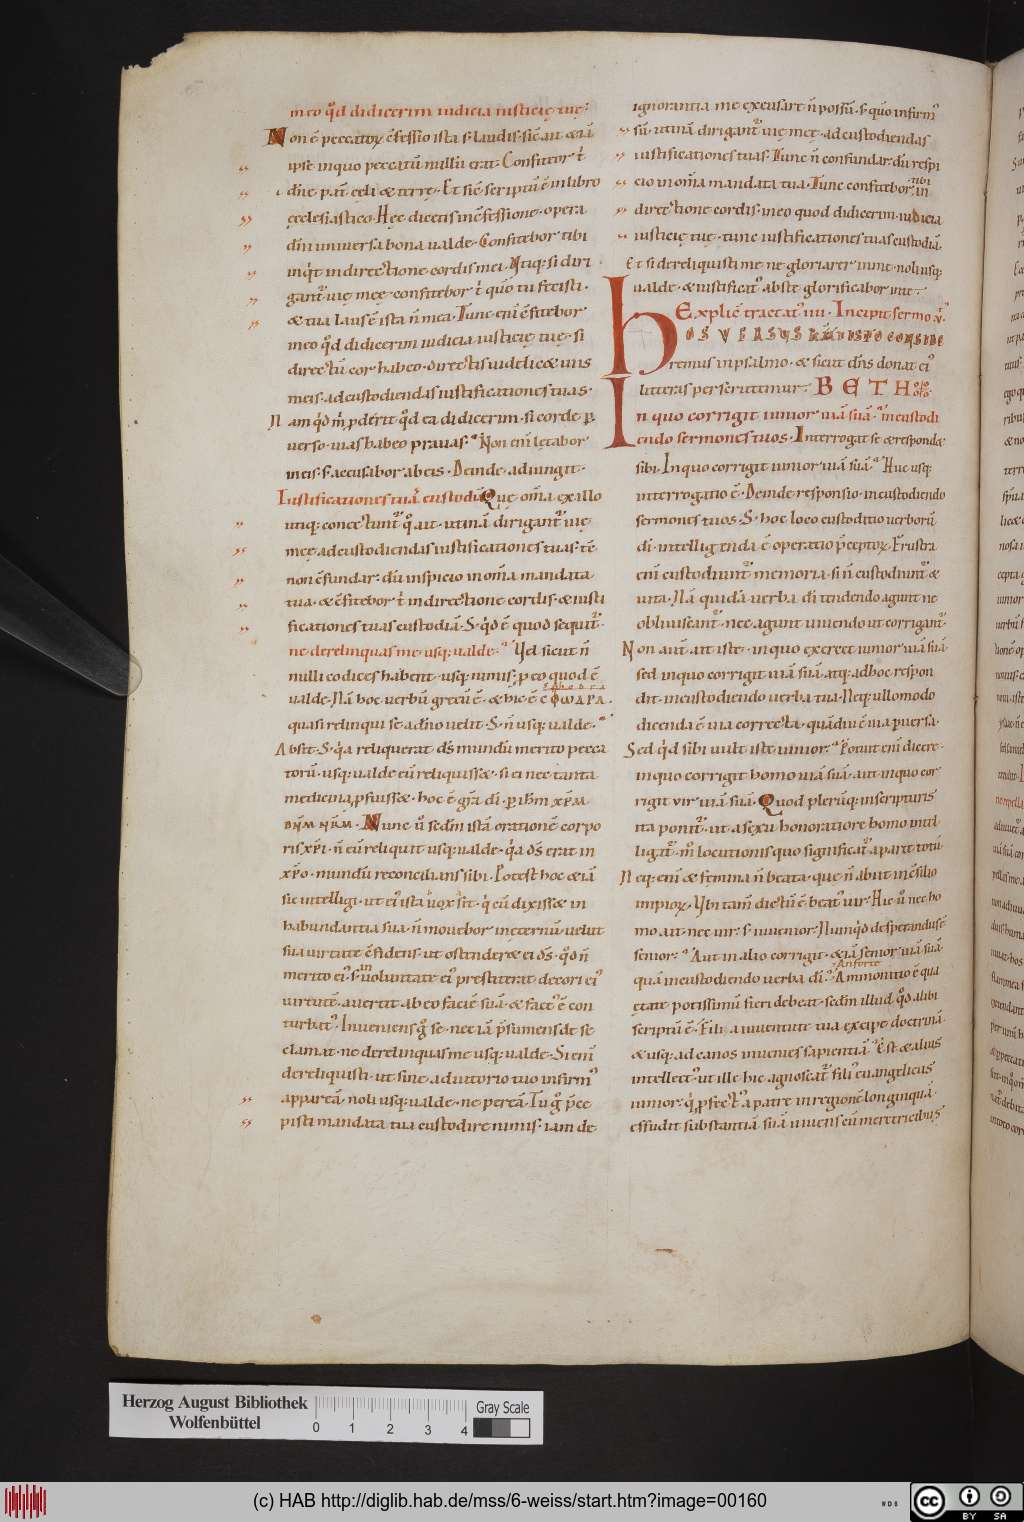 in eo qđ didicerim iudicia iusticię tuę:
Non ē peccatoꝝ c̄fessio ista s; laudis· sic̄ aut & iā
ipse in quo peccatū nullū erat· Confiteor t̄
dñe pat̄ cęli & terrę· Et sic̄ scriptū ē in libro
ęcclesiastico· Hęc dicetis in c̄fessione· opera
dn̄i uniuersa bona ualde· Confitebor tibi
inq̄t in directione cordis mei· Utiq; si diri
gant᷑ uię meę· confitebor t̄ quō tu fecisti·
& tua laus ē ista n̄ mea· Tunc eni c̄fitebor
in eo qđ didicerim iudicia iusticię tuę· si
directū cor habeo· directis uidelic& uiis
meis· ad custodiendas iustificationes tuas·
Nam qd m̄ ꝓderit qđ ea didicerim· si corde ꝑ
uerso· uias habeo prauas· Non eni lętabor
in eis· s; accusabor ab eis· Deinde adiungit·
Iustificationes tuas custodiā Quę om̄a ex illo
utiq; conectunt᷑ qđ ait· utinā dirigant᷑ uię
meę ad custodiendas iustificationes tuas· tc̄
non c̄fundar· dū inspicio in om̄a mandata
tua· & c̄fitebor t̄ in directione cordis· & iusti
ficationes tuas custodiā· S; qd ē quod sequit᷑·
ne derelinquas me usq; ualde· Vel sicut n̄
nulli codices habent· usq; nimis· ꝓ eo quod ē
ualde· Nā hoc uerbū grecū ē· & hic ē CΦΩΔΡΑ·
sphodra
quasi relinqui se a dn̄o uelit· S; n̄ usq; ualde·
Absit· S; q̄a reliquerat ds̄ mundū merito pecca
torū· usq; ualde eū reliquiss&· si ei nec tanta
medicina ꝓfuiss&· hoc ē grā di· ꝑ ihm xpm
dnm nrm· Nunc ū sedm istā orationē corpo
ris xp̄i· n̄ eū reliquit usq; ualde· q̄a ds̄ erat in
xp̄o· mundū reconcilians sibi· Potest hoc &iā
sic intelligi· ut ei ista uox sit· q̄ cū dixiss& in
habundantia sua n̄ mouebor in eternū· uelut
sua uirtute c̄fidens· ut ostender& ei ds̄· qđ n̄
merito ei s; in uoluntate ei prestiterat decori ei
uirtutē· auertit ab eo faciē suā· & fact ē con
turbat· Inueniens g̊ se· nec iā p̄sumens de se
clamat· ne derelinquas me usq; ualde· Si eni
dereliquisti· ut sine adiutorio tuo infirm
appareā· noli usq; ualde· ne pereā· Tu g̊ p̄ce
pisti mandata tua custodire nimis· iam de
ignorantia me excusare n̄ possū· s; quō infirm
sū· utinā dirigant᷑ uię meę· ad custodiendas
iustificationes tuas· Tunc n̄ confundar· dū respi
cio in om̄a mandata tua· Tunc confitebor tibi in
directione cordis· in eo quod didicerim iudicia
iusticię tuę· tunc iustificationes tuas custodiā·
Et si dereliquisti me· ne gloriarer in me· noli usq;
ualde· & iustificat abs te glorificabor in te·
Explic̄ tractat iiii· Incipit sermo v·
HOS VERSVS
remus in psalmo· & sicut dn̄s donat ei
litteras perscrutemur· BETH
In quo corrigit iunior uiā suā· in custodi
endo sermones tuos· Interrogat se & respond&
sibi· In quo corrigit iunior uiā suā· Huc usq;
interrogatio ē· Deinde responsio· in custodiendo
sermones tuos· S; hoc loco custoditio uerborū
di· intelligenda ē operatio p̄ceptoꝝ· Frustra
eni custodiunt᷑ memoria· si n̄ custodiunt᷑ &
uita· Nā quidā uerba di tenendo agunt ne
obliuiscant᷑· nec agunt uiuendo ut corrigant᷑·
Non aut ait iste· in quo exercet iunior uiā suā·
sed in quo corrigit uiā suā· atq; ad hoc respon
dit· in custodiendo uerba tua· Neq; ullo modo
dicenda ē uia correcta· quādiu ē uia puersa·
Sed qd sibi uult iste iunior· Potuit eni dicere·
in quo corrigit homo uiā suā· aut in quo cor
rigit uir uiā suā· Quod plerūq; in scripturis
ita ponit᷑· ut a sexu honoratiore homo intel
ligat᷑· m̄ locutionis quo significat᷑ a parte totū·
Neq; eni & femina n̄ beata· que n̄ abiit in c̄silio
impioꝝ· Ubi tam̄ dictū ē· beat uir· Hic ū nec ho
mo ait· nec uir· s; iuuenior· Nunqd desperandus ē
senior· Aut in alio corrigit &iā senior uiā suā·
quā in custodiendo uerba di· An forte
Ammonitio ē qua
ętate potissimū fieri debeat· sedm illud qđ alibi
scriptū ē· Fili· a iuuentute tua excipe doctrinā·
& usq; ad canos inuenies sapientiā· Est & alius
intellect· ut ille hic agnoscat᷑ fili euangelicus
iunior· q̄ ꝓfect a patre in regionē longinquā·
effudit substantiā suā uiuens cū meretricibus
Herzog August Bibliothek
Wolfenbüttel
0 1 2 3 4
Gray Scale
(c) HAB http://diglib.hab.de/mss/6-weiss/start.htm?image=00160
cc BY SA